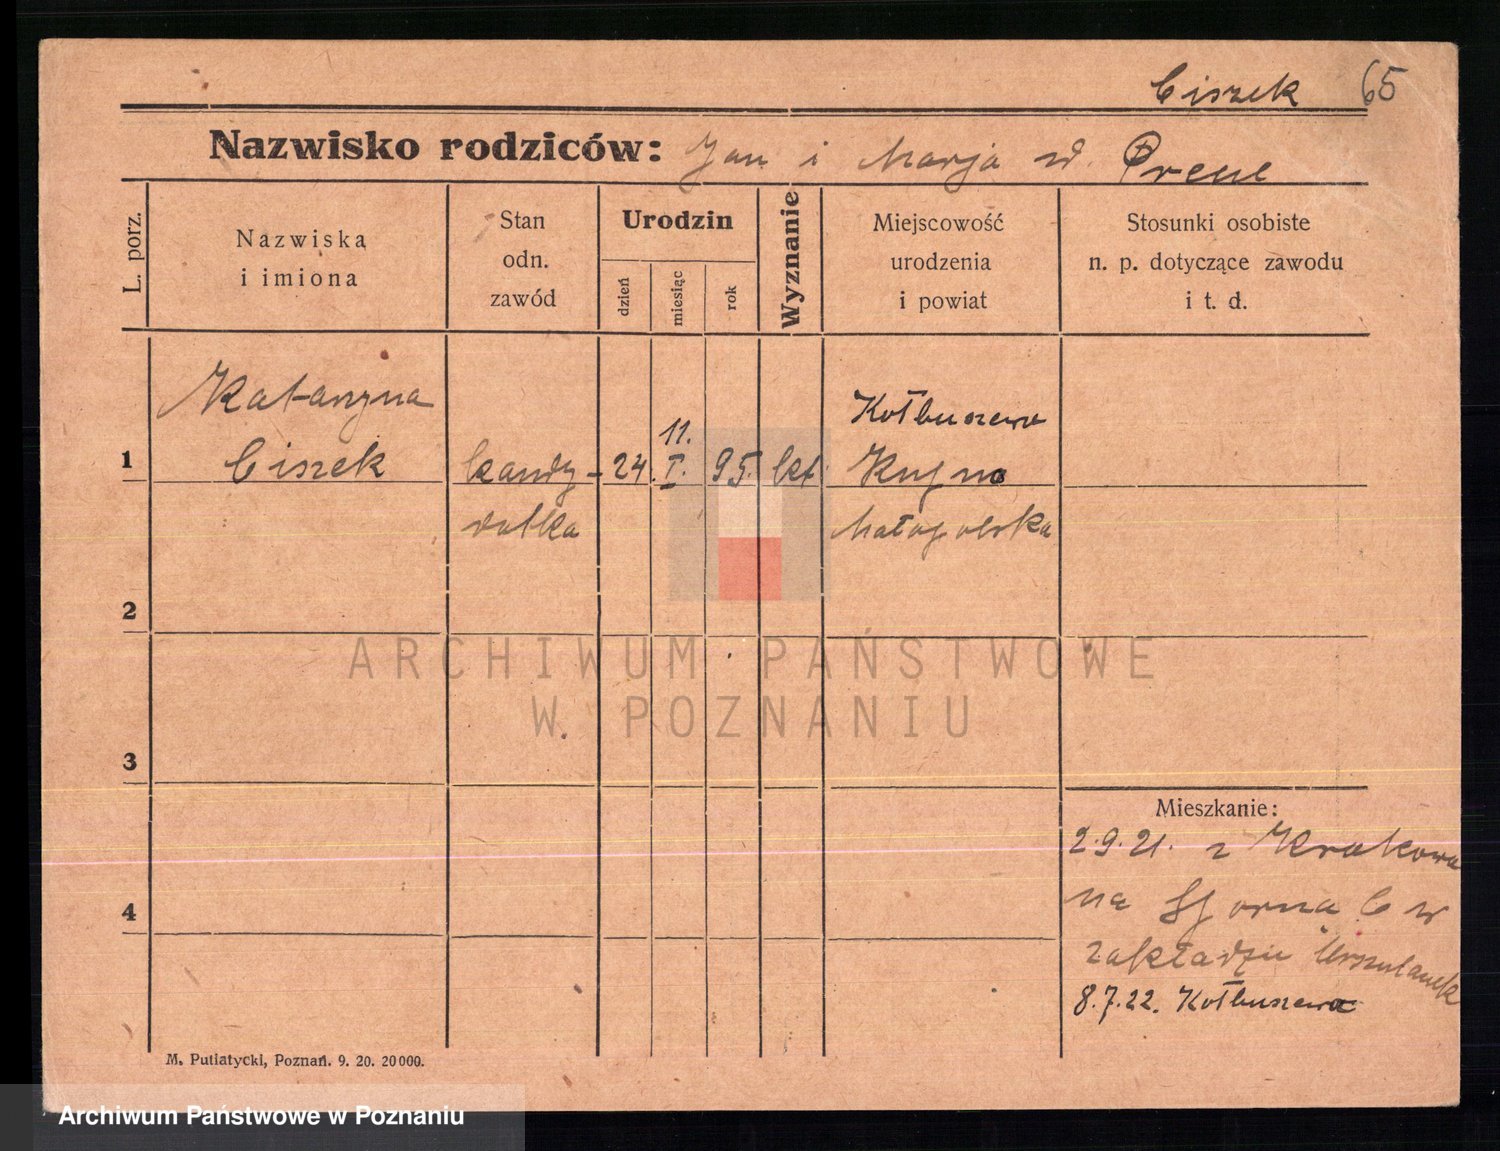 Ciszek 65
Nazwisko rodziców: Jan i Marja d.
L. porz.
Nazwiska
i imiona
Stan
odn.
zawód
Urodzin
dzień
miesiąc
rok
Wyznanie
Miejscowość
urodzenia
i powiat
Stosunki osobiste
n. p. dotyczące zawodu
i t. d.
Katarzyna Kołbuszewa
11.
1 Ciszek kandy- 24. I. 95. kt.
datka Małopolska
2
ARCHIWUM PAŃSTWOWE
W POZNANIU
3
Mieszkanie:
2.9.21. z Krakowa
4
na w
zakładzie Urszulanek
8.7.22. Kołbuszewa
M. Putiatycki, Poznań. 9. 20. 20000.
Archiwum Państwowe w Poznaniu